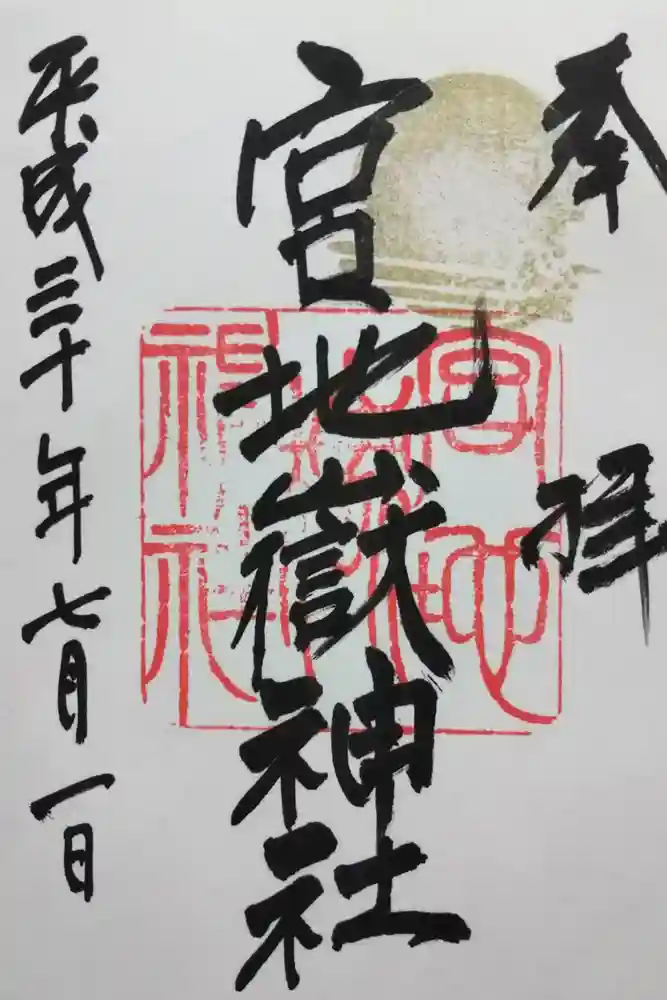 奉拝
宮地嶽神社
平成三十年七月一日
宮地
嶽
神社